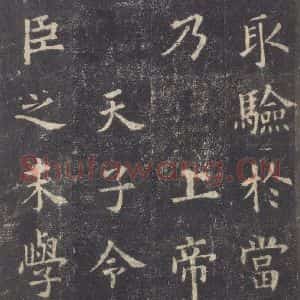 取驗於當
乃上帝
天子令
臣之末學
Shufawang.Cn